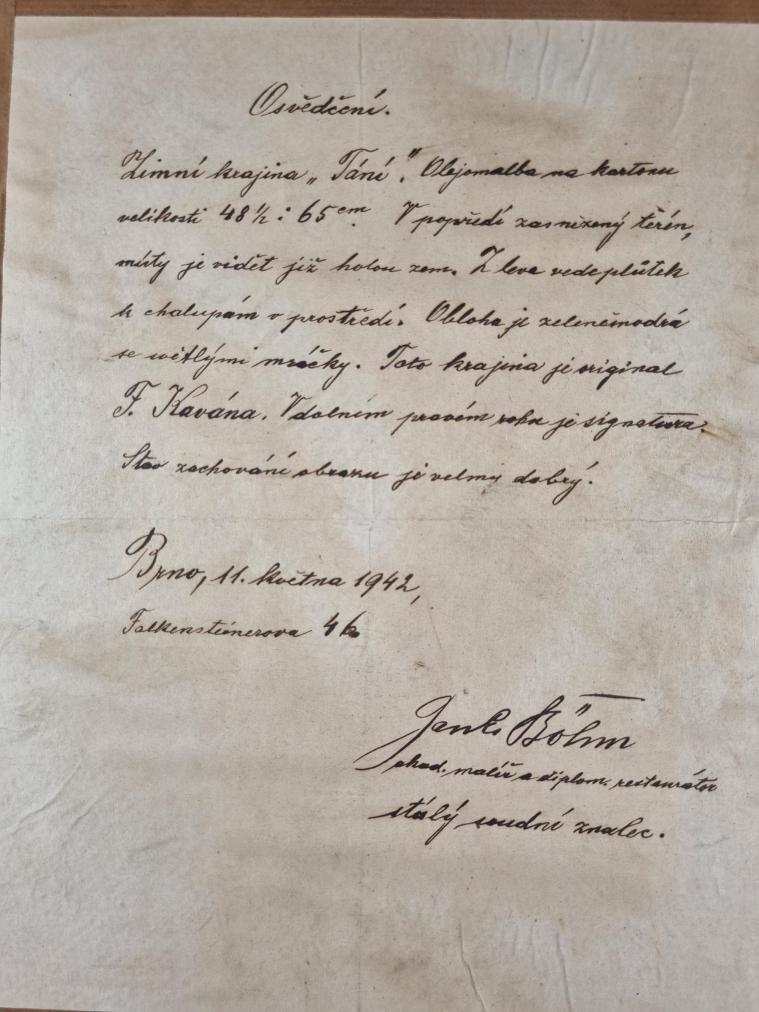 Osvědčení.
Zimní krajina „Tání". Olejomalba na kartonu
velikosti 48½ : 65 cm. V popředí zasnížený těrén,
místy je vidět již holou zem. Z leva vede plůtek
k chalupám v prostředí. Obloha je zeleněmodrá
se světlými mráčky. Tato krajina je original
F. Kavána. V dolním pravém rohu je signatura.
Stav zachování obrazu je velmi dobrý.
Brno, 11. května 1942,
Falkensteinerova 46
Böhm
akad. malíř a diplom. restaurátor
stálý soudní znalec.